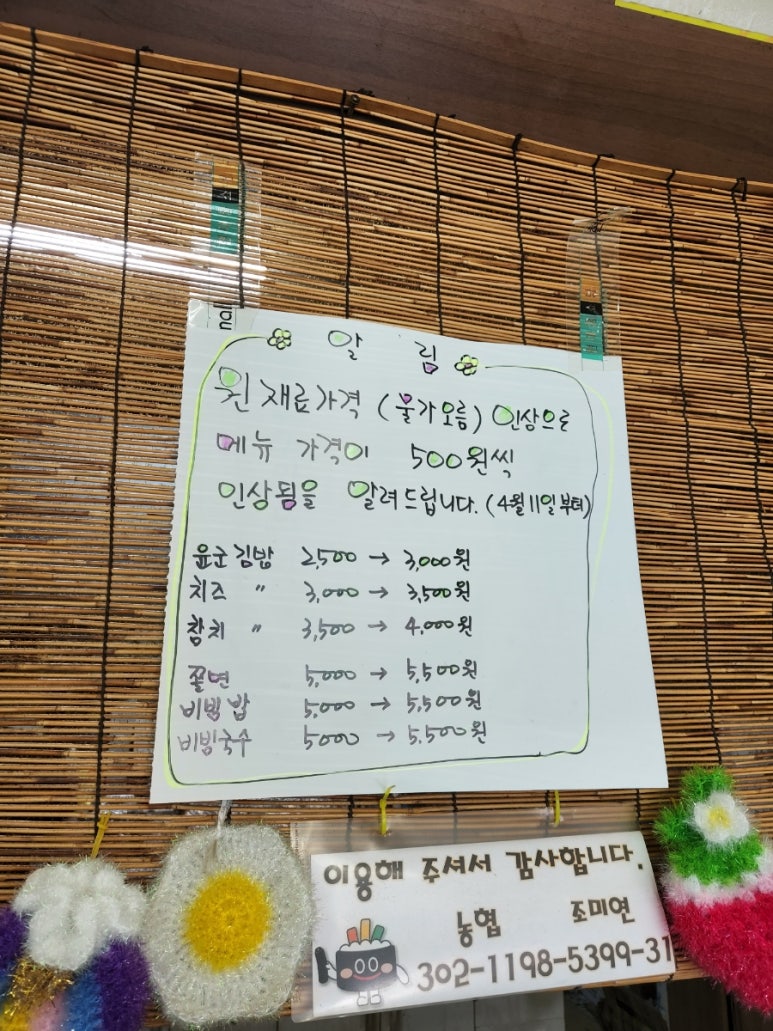 알 림
원재료가격 (물가오름) 인상으로
메뉴 가격이 500원씩
인상됨을 알려드립니다. (4월11일부터)
윤군김밥 2,500 → 3,000원
치즈 〃 3,000 → 3,500원
참치 〃 3,500 → 4,000원
쫄면 5,000 → 5,500원
비빔밥 5,000 → 5,500원
비빔국수 5000 → 5,500원
이용해 주셔서 감사합니다.
농협 조미연
302-1198-5399-31